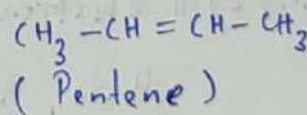 CH₃ – CH = CH – CH₃
( Pentene )